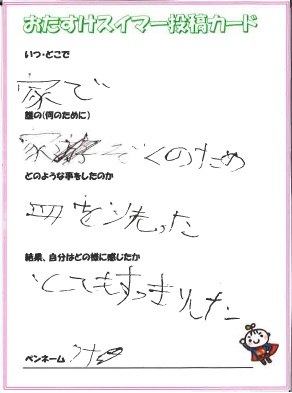 おたすけスイマー投稿カード
いつ・どこで
家で
誰の(何のために)
家ぞくのため
どのような事をしたのか
皿をあらった
結果、自分はどの様に感じたか
とてもすっきりした
ペンネーム